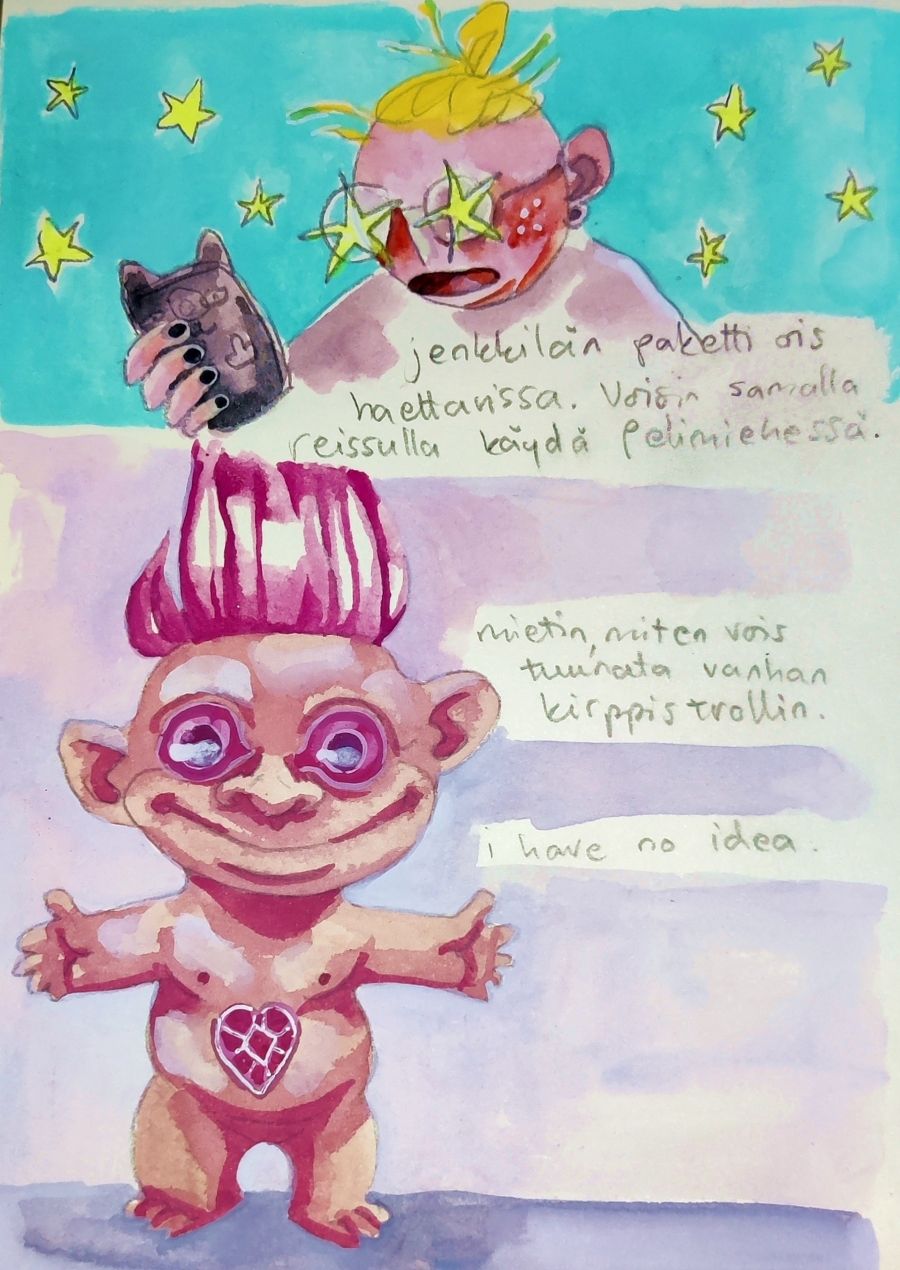 jenkkilän paketti ois
haettavissa. Voisin samalla
reissulla käydä Pelimiehessä.
mietin, miten vois
tuunata vanhan
kirppistrollin.
i have no idea.